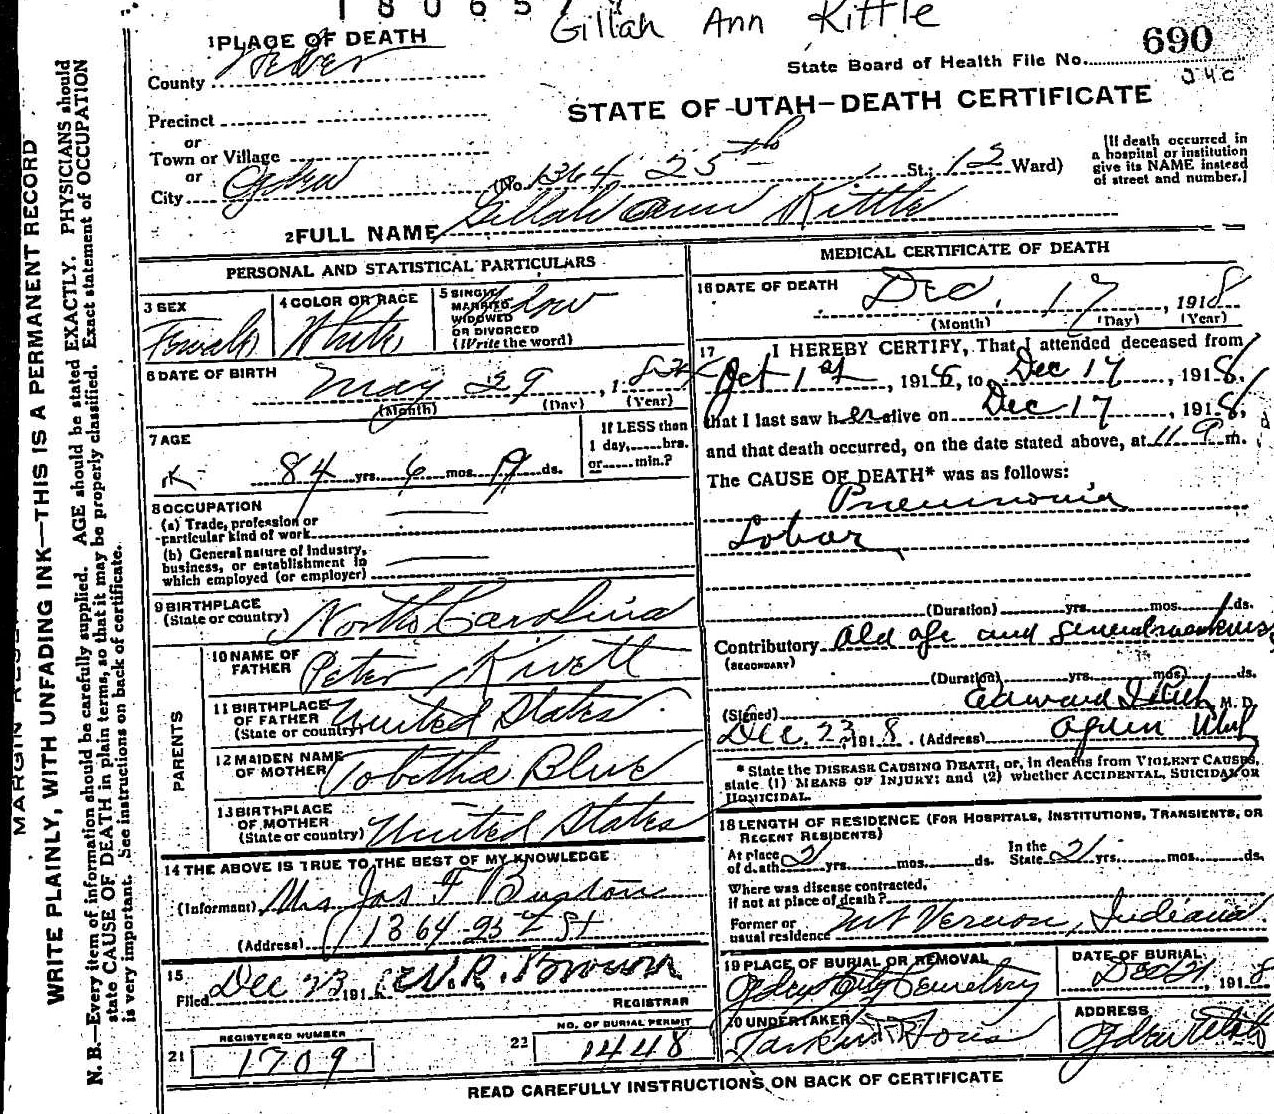 18065
Gillah Ann Kittle
1 PLACE OF DEATH
County Weber
State Board of Health File No. 690
Precinct
STATE OF UTAH—DEATH CERTIFICATE
or
Town or Village
or
City Ogden (No. 1364 25th St.; 12 Ward)
[If death occurred in
a hospital or institution
give its NAME instead
of street and number.]
2 FULL NAME Gillah Ann Kittle
PERSONAL AND STATISTICAL PARTICULARS
3 SEX Female
4 COLOR OR RACE White
5 SINGLE
MARRIED
WIDOWED
OR DIVORCED
(Write the word)
Widow
6 DATE OF BIRTH May 29, 1834
(Month) (Day) (Year)
7 AGE
84 yrs. 6 mos. 19 ds.
If LESS than
1 day,......hrs.
or......min.?
8 OCCUPATION
(a) Trade, profession or
particular kind of work
(b) General nature of industry,
business, or establishment in
which employed (or employer)
9 BIRTHPLACE
(State or country) North Carolina
PARENTS
10 NAME OF
FATHER Peter Kivett
11 BIRTHPLACE
OF FATHER
(State or country) United States
12 MAIDEN NAME
OF MOTHER Tobitha Blue
13 BIRTHPLACE
OF MOTHER
(State or country) United States
14 THE ABOVE IS TRUE TO THE BEST OF MY KNOWLEDGE
(Informant) Mrs Jas F Burton
(Address) 1364 25th St
15
Filed Dec 23 191 W.R. Brown
REGISTRAR
21 REGISTERED NUMBER
1709
22 NO. OF BURIAL PERMIT
1448
MEDICAL CERTIFICATE OF DEATH
16 DATE OF DEATH Dec. 17, 1918
(Month) (Day) (Year)
17 I HEREBY CERTIFY, That I attended deceased from
Oct 1st, 1918, to Dec 17, 1918,
that I last saw her alive on Dec 17, 1918,
and that death occurred, on the date stated above, at 11 P m.
The CAUSE OF DEATH* was as follows:
Pneumonia
Lobar
(Duration) yrs. mos. ds.
Contributory Old age and general weakness
(SECONDARY)
(Duration) yrs. mos. ds.
(Signed) Edward I Rich M. D.
Dec. 23, 1918. (Address) Ogden Utah
* State the DISEASE CAUSING DEATH, or, in deaths from VIOLENT CAUSES,
state (1) MEANS OF INJURY; and (2) whether ACCIDENTAL, SUICIDAL or
HOMICIDAL.
18 LENGTH OF RESIDENCE (FOR HOSPITALS, INSTITUTIONS, TRANSIENTS, OR
RECENT RESIDENTS)
At place of death 21 yrs. mos. ds. In the State 21 yrs. mos. ds.
Where was disease contracted,
if not at place of death?
Former or
usual residence Mt Vernon, Indiana
19 PLACE OF BURIAL OR REMOVAL
Ogden City Cemetery
DATE OF BURIAL
Dec 21, 1918
20 UNDERTAKER
Larkin & Sons
ADDRESS
Ogden Utah
READ CAREFULLY INSTRUCTIONS ON BACK OF CERTIFICATE
WRITE PLAINLY, WITH UNFADING INK—THIS IS A PERMANENT RECORD
N. B.—Every item of information should be carefully supplied. AGE should be stated EXACTLY. PHYSICIANS should
state CAUSE OF DEATH in plain terms, so that it may be properly classified. Exact statement of OCCUPATION
is very important. See instructions on back of certificate.